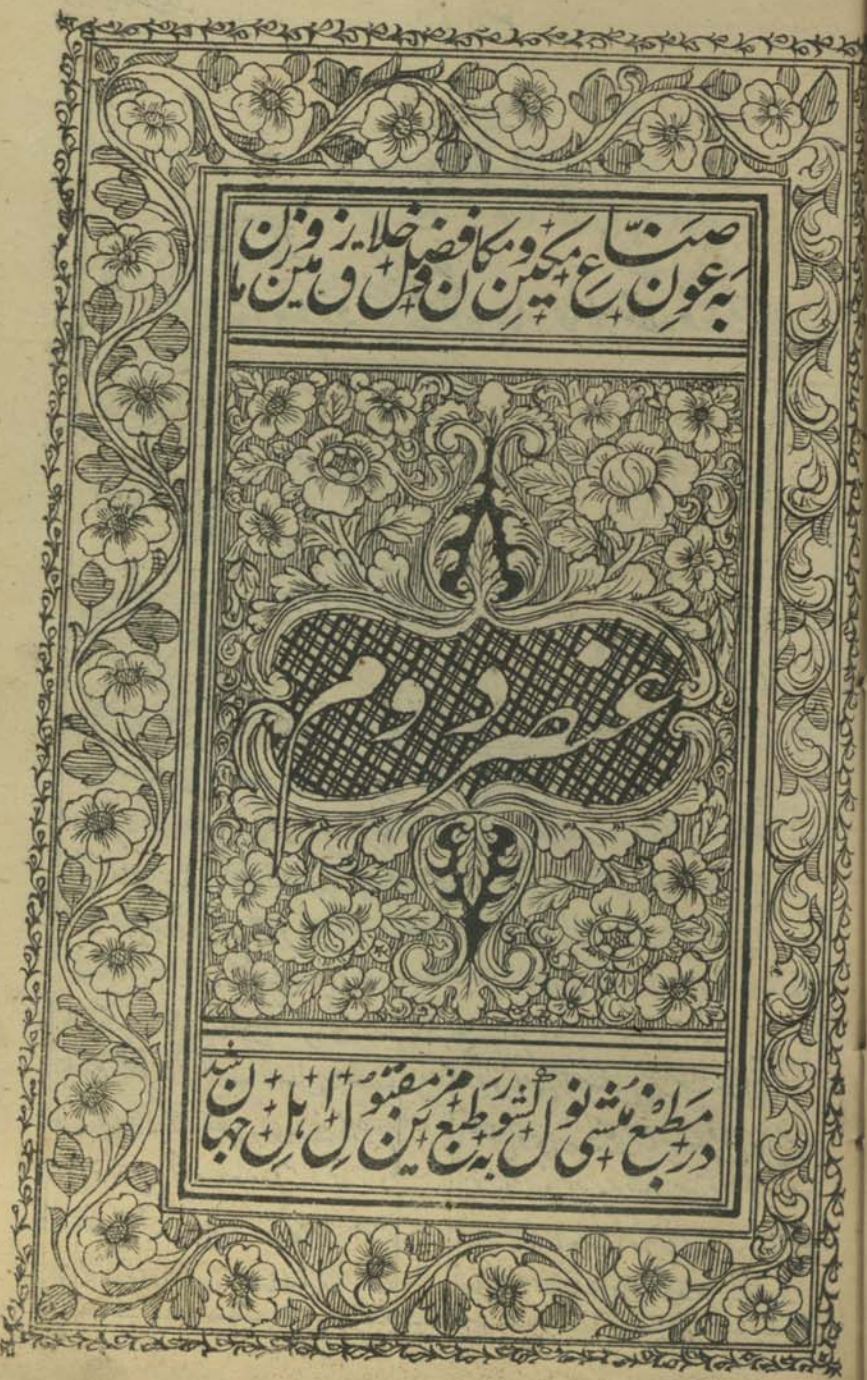 به عون صناع مکین و مکان و فضل خلاق زمین و زمان
عنصر دوم
در مطبع منشی نول کشور به طبع مزین مقبول اهل جهان شد